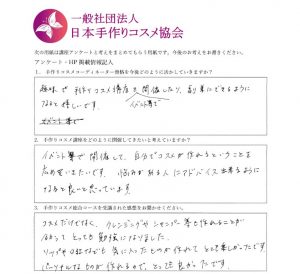 一般社団法人
日本手作りコスメ協会
次の用紙は講座アンケートと考えをまとめてもらう用紙です。今後のお考えをお書きください。
アンケート・HP 掲載情報記入
1. 手作りコスメコーディネーター資格を今後どのように活かしていきますか？
趣味で手作りコスメ講座を開催したり、副業にできるように
イベント等で
なると嬉しいです。
2. 手作りコスメ講座をどのように開催してきたいと考えていますか？
イベント等で開催して、自分でコスメが作れるということを
広めていきたいです。悩みがある人にアドバイス出来るように
なると良いと思っています。
3. 手作りコスメ総合コースを受講された感想をお聞かせください。
コスメだけでなく、クレンジングやシャンプー等も作れることが
分かって とっても勉強になりました。
リップや口紅なども 気に入ったものが作れて とても楽しかったです。
パーソナルなものが作れるので、とっても良かったです。